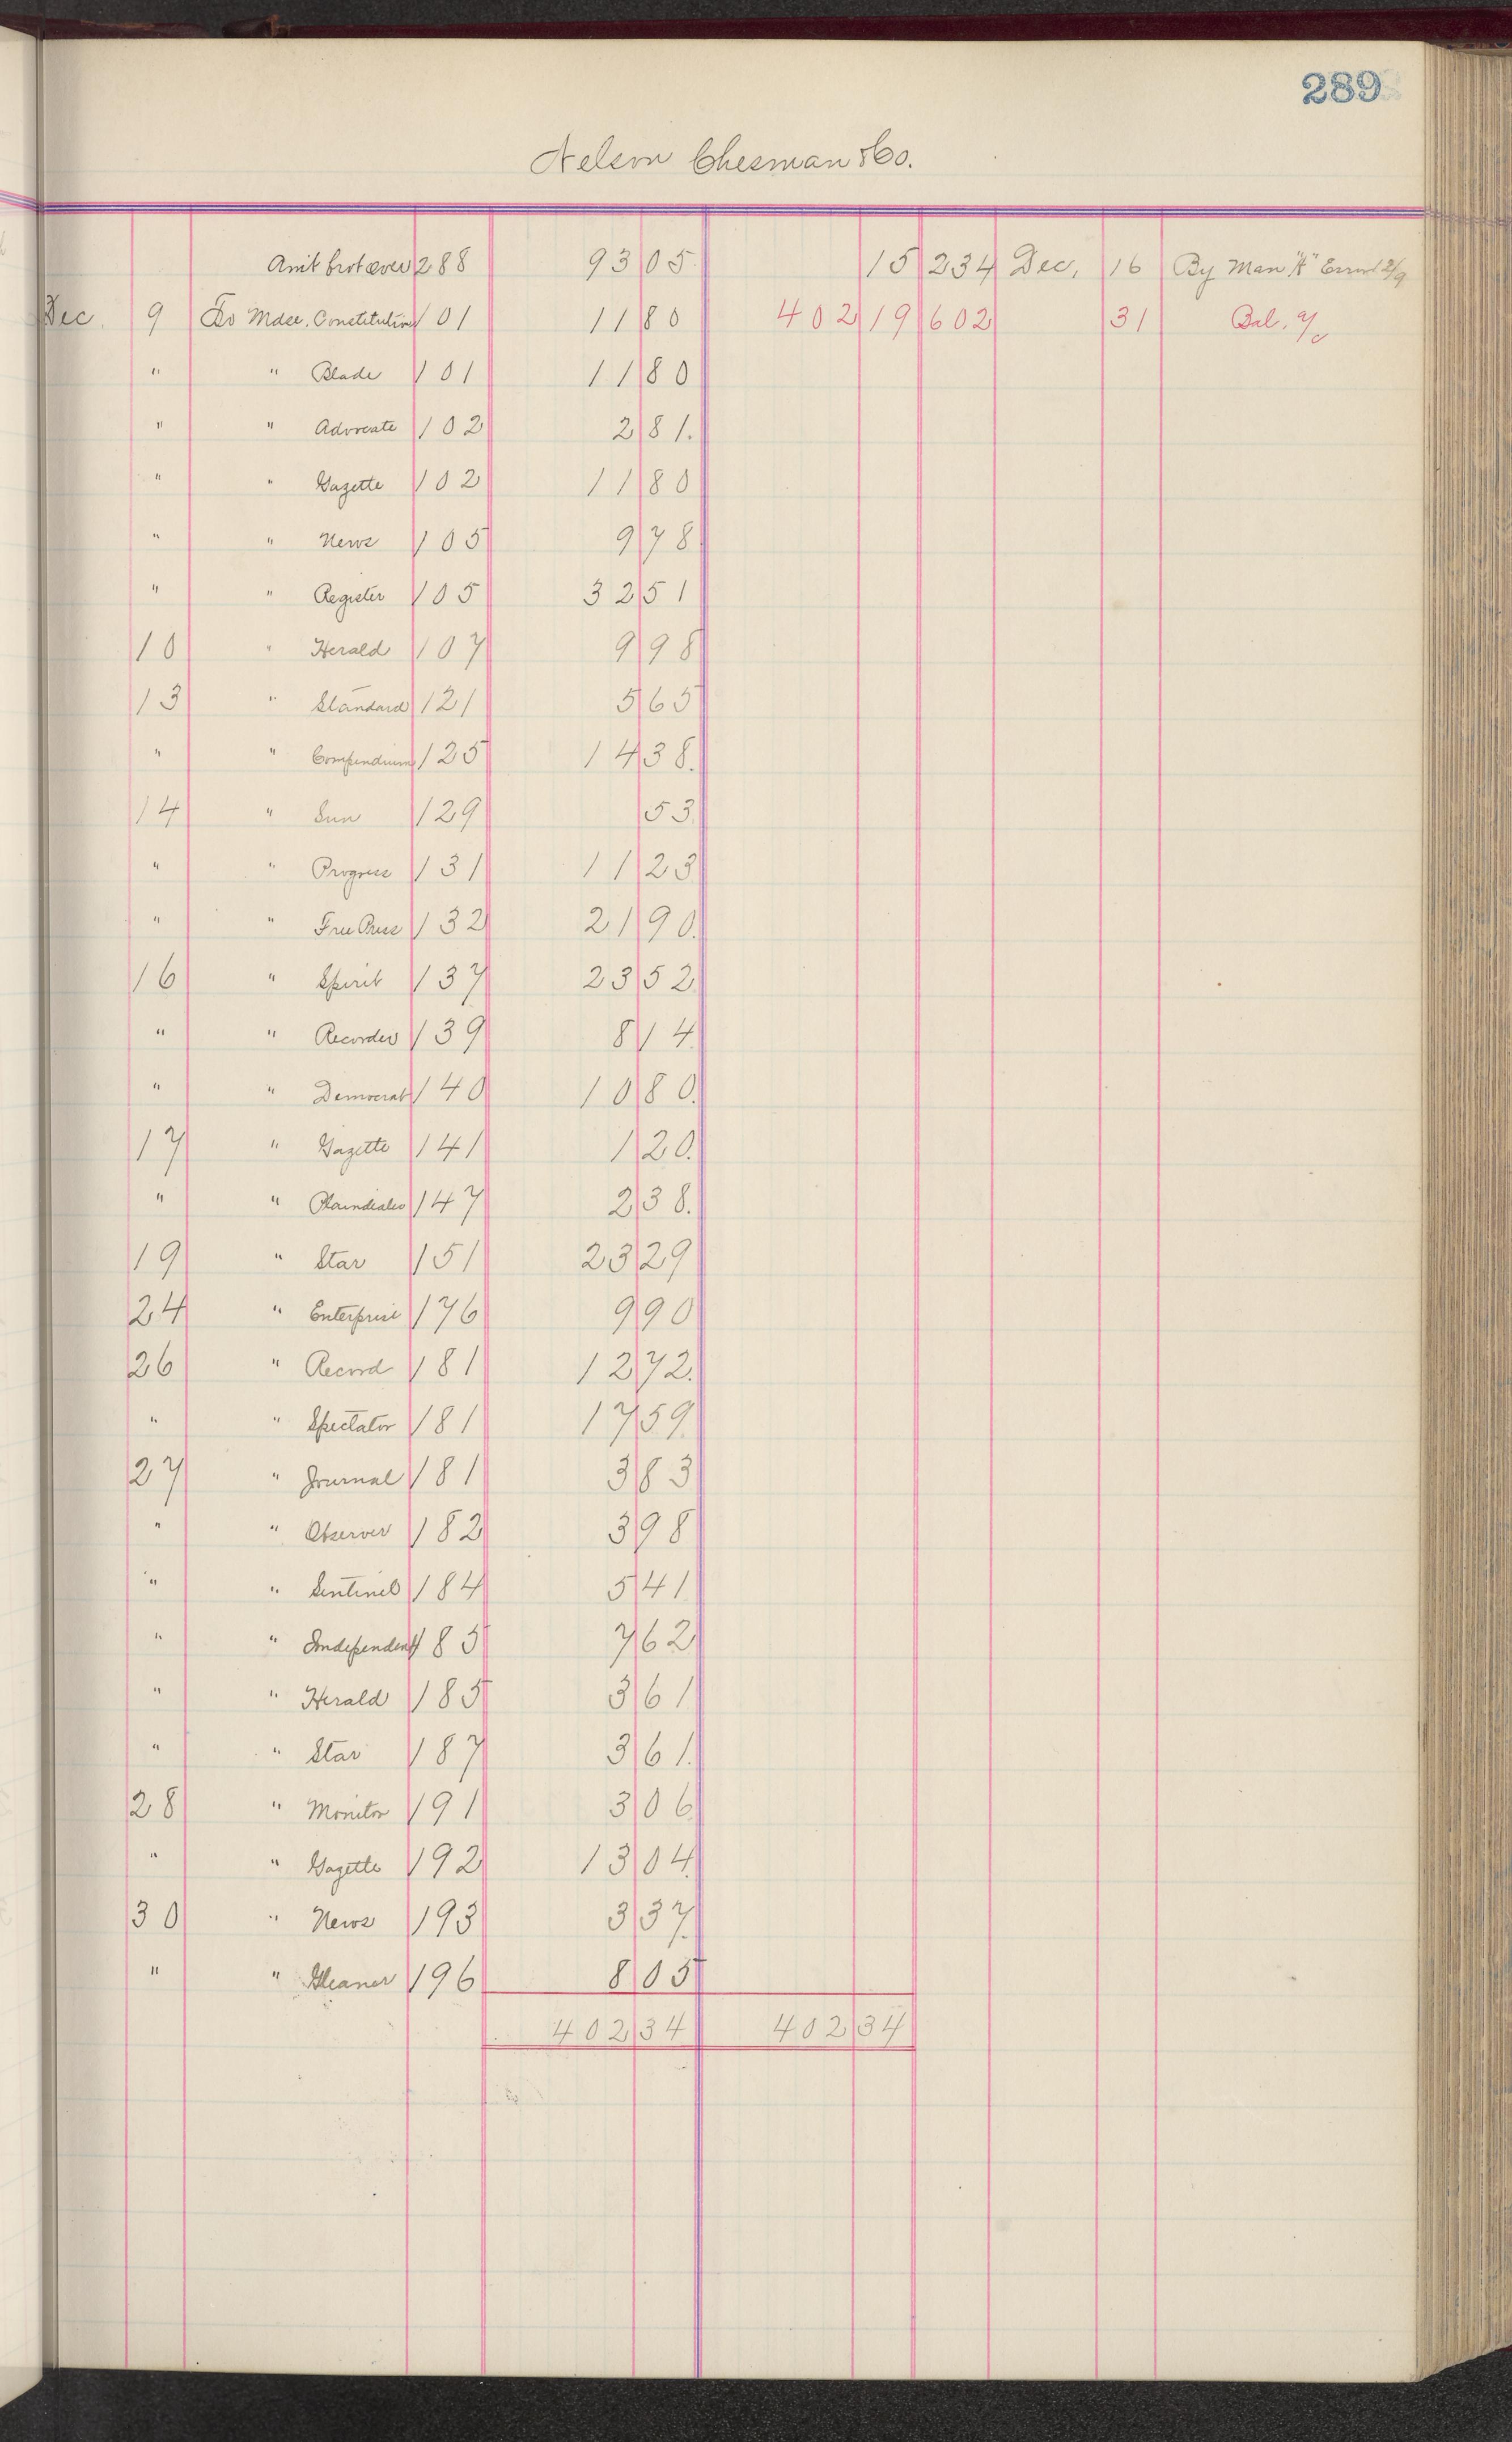 289
Nelson Chesman & Co.
Amt brot over 288 93 05 15 234 Dec. 16 By Man "A" Error 2/9
Dec. 9 To Mdse. Constitution 101 11 80 402 19 602 31 Bal. a/c
" " Blade 101 11 80
" " Advocate 102 2 81.
" " Gazette 102 11 80
" " News 105 9 78
" " Register 105 32 51
10 " Herald 107 9 98
13 " Standard 121 5 65
" " Compendium 125 14 38.
14 " Sun 129 53
" " Progress 131 11 23
" " Free Press 132 21 90.
16 " Spirit 137 23 52
" " Recorder 139 8 14
" " Democrat 140 10 80.
17 " Gazette 141 1 20.
" " Plaindealer 147 2 38.
19 " Star 151 23 29
24 " Enterprise 176 9 90
26 " Record 181 12 72.
" " Spectator 181 17 59.
27 " Journal 181 3 83
" " Observer 182 3 98
" " Sentinel 184 5 41
" " Independent 185 7 62
" " Herald 185 3 61
" " Star 187 3 61.
28 " Monitor 191 3 06
" " Gazette 192 13 04
30 " News 193 3 37.
" " Gleaner 196 8 05
402 34 402 34